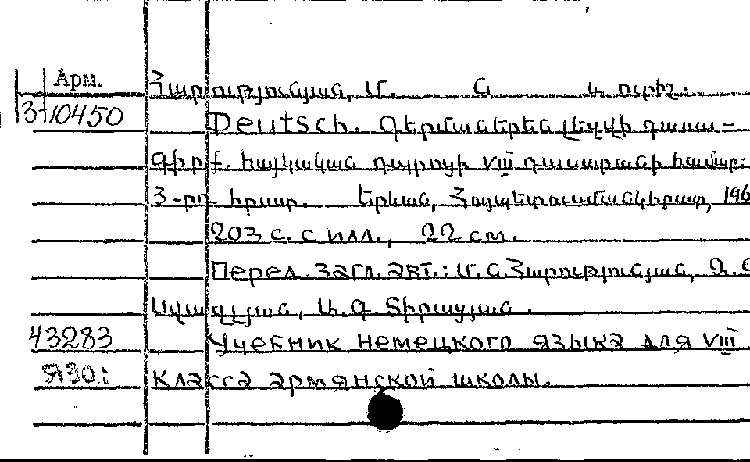 Арм. Հարությունյան, Մ. Ս. և ուրիշ.
3-10450 Deutsch. Գերմաներեն լեզվի դասա-
գիրք. հայկական դպրոցի VIII դասարանի համար:
3-րդ հրատ. Երևան, Հայպետուսմանկհրատ, 196
203 с. с илл., 22 см.
Перед загл. авт.: Մ. Ս. Հարությունյան,
Ավագյան, Ա. Գ. Տիրացյան.
43283 Учебник немецкого языка для VIII
класса армянской школы.